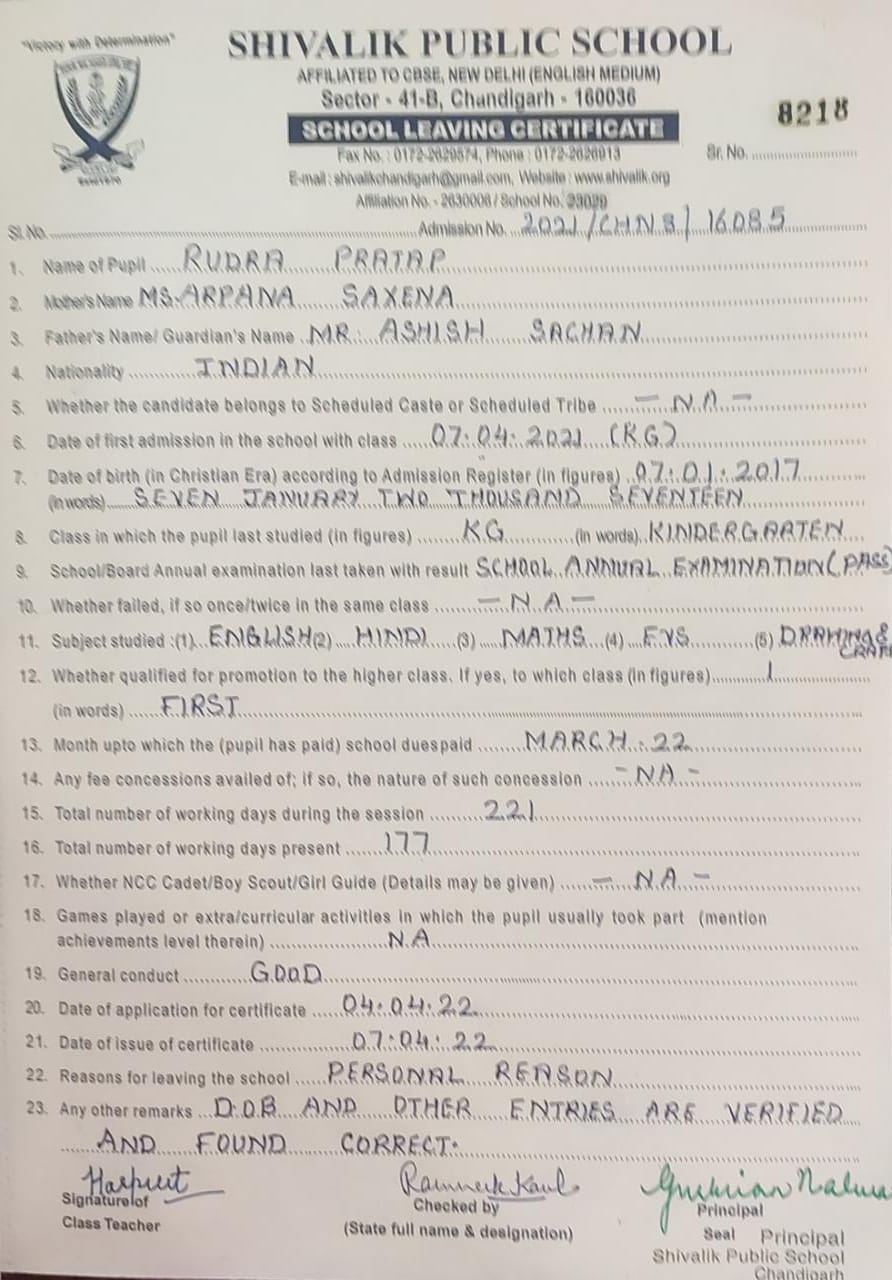 "Victory with Determination"
SHIVALIK PUBLIC SCHOOL
AFFILIATED TO CBSE, NEW DELHI (ENGLISH MEDIUM)
Sector - 41-B, Chandigarh - 160036
8218
SCHOOL LEAVING CERTIFICATE
Fax No. : 0172-2629574, Phone : 0172-2626913
Sr. No.
E-mail : shivalikchandigarh@gmail.com, Website : www.shivalik.org
Affiliation No. - 2630006 / School No. 23029
Sl. No. Admission No. 2021/CHNB/16085
1. Name of Pupil RUDRA PRATAP
2. Mother's Name MS. ARPANA SAXENA
3. Father's Name/ Guardian's Name MR. ASHISH SACHAN
4. Nationality INDIAN
5. Whether the candidate belongs to Scheduled Caste or Scheduled Tribe - N.A -
6. Date of first admission in the school with class 07.04.2021 (K.G.)
7. Date of birth (in Christian Era) according to Admission Register (in figures) 07.01.2017
(in words) SEVEN JANUARY TWO THOUSAND SEVENTEEN
8. Class in which the pupil last studied (in figures) KG (in words) KINDERGARTEN
9. School/Board Annual examination last taken with result SCHOOL ANNUAL EXAMINATION (PASS)
10. Whether failed, if so once/twice in the same class - N.A -
11. Subject studied :(1) ENGLISH (2) HINDI (3) MATHS (4) EVS (5) DRAWING & CRAFT
12. Whether qualified for promotion to the higher class. If yes, to which class (in figures) 1
(in words) FIRST
13. Month upto which the (pupil has paid) school duespaid MARCH.22
14. Any fee concessions availed of; if so, the nature of such concession - NA -
15. Total number of working days during the session 221
16. Total number of working days present 177
17. Whether NCC Cadet/Boy Scout/Girl Guide (Details may be given) - N.A -
18. Games played or extra/curricular activities in which the pupil usually took part (mention
achievements level therein) N.A
19. General conduct GOOD
20. Date of application for certificate 04.04.22
21. Date of issue of certificate 07.04.22
22. Reasons for leaving the school PERSONAL REASON
23. Any other remarks D.O.B AND OTHER ENTRIES ARE VERIFIED
AND FOUND CORRECT.
Harpreet
Signature of
Class Teacher
Ramneek Kaul
Checked by
(State full name & designation)
Principal
Seal Principal
Shivalik Public School
Chandigarh